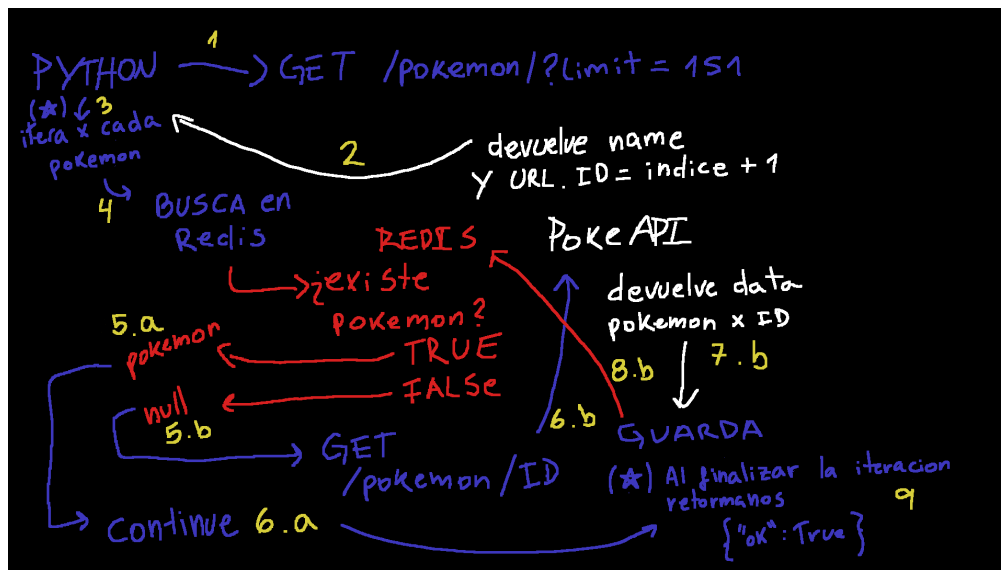 1
PYTHON → GET /pokemon/?limit = 151
(★) 3
itera x cada
pokemon
2
devuelve name
Y URL. ID = indice + 1
4
BUSCA en
Redis
REDIS
PokeAPI
¿existe
pokemon?
devuelve data
pokemon x ID
5.a
pokemon
TRUE
FALSe
8.b
7.b
null
5.b
6.b
GUARDA
GET
/pokemon/ID
(★) Al finalizar la iteracion
retornamos
9
{"ok": True}
continue 6.a